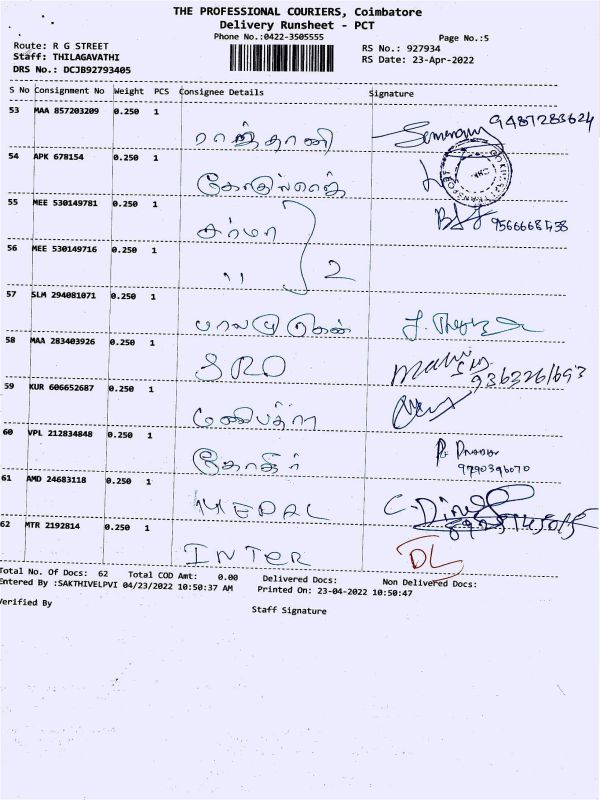 THE PROFESSIONAL COURIERS, Coimbatore
Delivery Runsheet - PCT
Phone No.:0422-3505555
Page No.:5
Route: R G STREET
RS No.: 927934
Staff: THILAGAVATHI
RS Date: 23-Apr-2022
DRS No.: DCJB92793405
S No Consignment No Weight PCS Consignee Details Signature
53 MAA 857203209 0.250 1
ராஜ்தானி 9487283624
54 APK 678154 0.250 1
55 MEE 530149781 0.250 1
சர்மா 9566668458
56 MEE 530149716 0.250 1
,, 2
57 SLM 294081071 0.250 1
58 MAA 283403926 0.250 1
SRD 9363261693
59 KUR 606652687 0.250 1
மணிபத்ரா
60 VPL 212834848 0.250 1
9790396070
61 AMD 24683118 0.250 1
MEDAL C. Dinesh
62 MTR 2192814 0.250 1
INTER DL
Total No. Of Docs: 62 Total COD Amt: 0.00 Delivered Docs: Non Delivered Docs:
Entered By :SAKTHIVELPVI 04/23/2022 10:50:37 AM Printed On: 23-04-2022 10:50:47
Verified By
Staff Signature